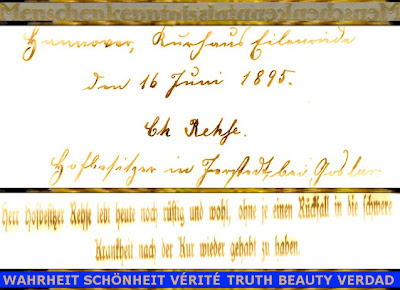 Menschenkenntnis
Hannover, Kurhaus Eilenriede
den 16 Juni 1895.
Ch Rehse.
Hofbesitzer in Jerstedt, bei Goslar
Herr Hofbesitzer Rehse lebt heute noch rüstig und wohl, ohne je einen Rückfall in die schwere
Krankheit nach der Kur wieder gehabt zu haben.
WAHRHEIT SCHÖNHEIT VÉRITÉ TRUTH BEAUTY VERDAD